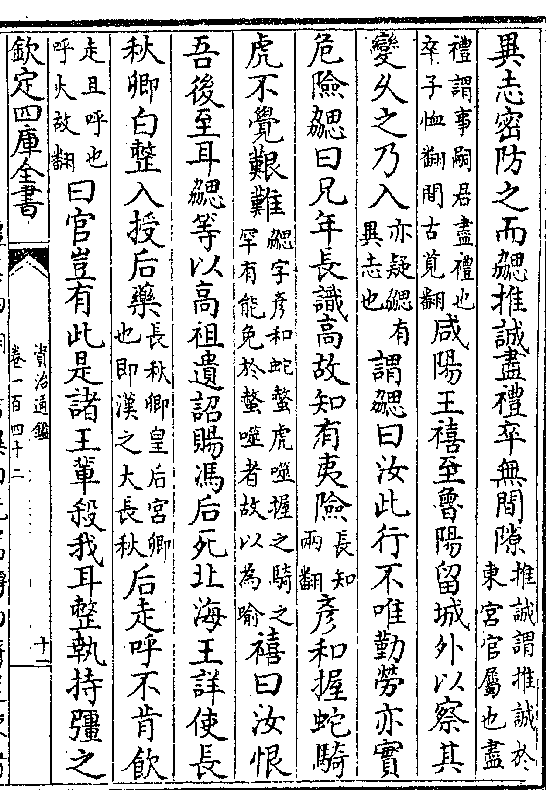 異志密防之而勰推誠盡禮卒無間隙推誠謂推誠於東宮官屬也盡
禮謂事嗣君盡禮也卒子恤翻間古莧翻咸陽王禧至魯陽留城外以察其
變久之乃入亦疑勰有異志也謂勰曰汝此行不唯勤勞亦實
危險勰曰兄年長識高故知有夷險長知兩翻彥和握蛇騎
虎不覺艱難勰字彥和蛇螫虎噬握之騎之罕有能免於螫噬者故以為喻禧曰汝恨
吾後至耳勰等以高祖遺詔賜馮后死北海王詳使長
秋卿白整入授后藥長秋卿皇后宮卿也即漢之大長秋后走呼不肯飲
走且呼也呼火故翻曰官豈有此是諸王輩殺我耳整執持彊之
欽定四庫全書
資治通鑑
卷一百四十二
十二